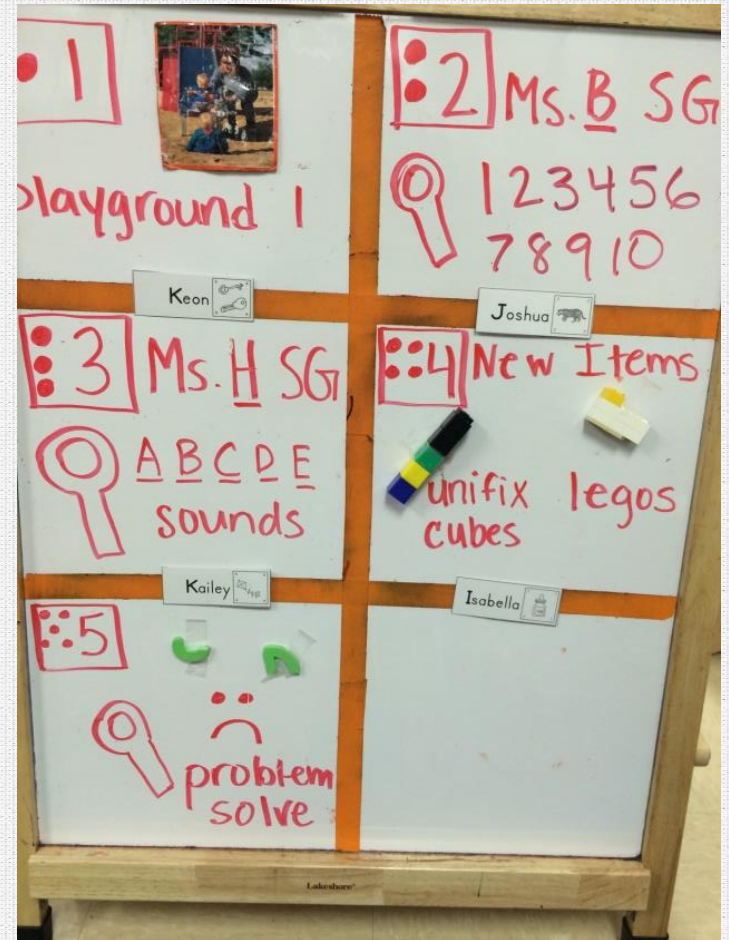 1
playground 1
2 Ms. B SG
1 2 3 4 5 6
7 8 9 10
Keon
Joshua
3 Ms. H SG
A B C D E
sounds
4 New Items
unifix
cubes
legos
Kailey
Isabella
5
problem
solve
Lakeshore